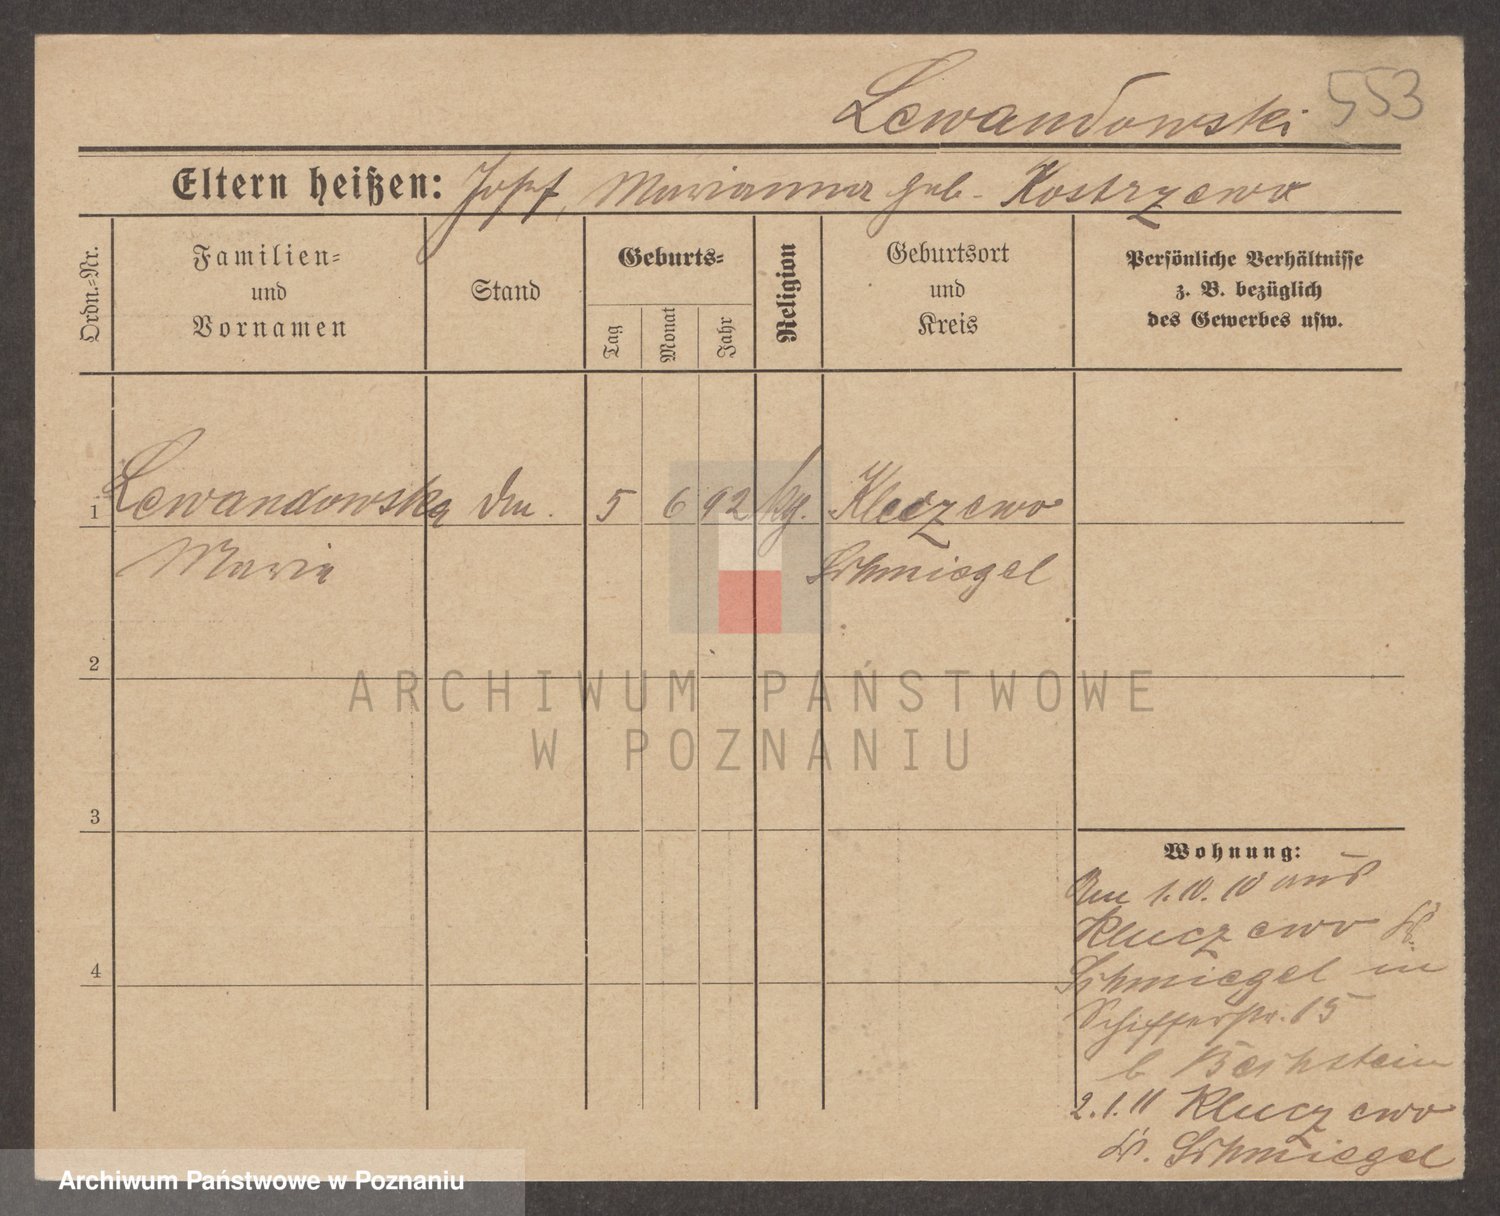 Lewandowski 553
Eltern heißen: Josef, Marianna geb. Kostrzewa
Ordn.-Nr.
Familien-
und
Vornamen
Stand
Geburts-
Tag
Monat
Jahr
Religion
Geburtsort
und
Kreis
Persönliche Verhältnisse
z. B. bezüglich
des Gewerbes usw.
1 Lewandowska 5 6 92 Kluczewo
Maria Schmiegel
2
ARCHIWUM PAŃSTWOWE
W POZNANIU
3
Wohnung:
Am 1.10.10 aus
Kluczewo Kr.
4
Schmiegel in
Schifferstr. 15
b. Bernstein
2.1.11 Kluczewo
Kr. Schmiegel
Archiwum Państwowe w Poznaniu